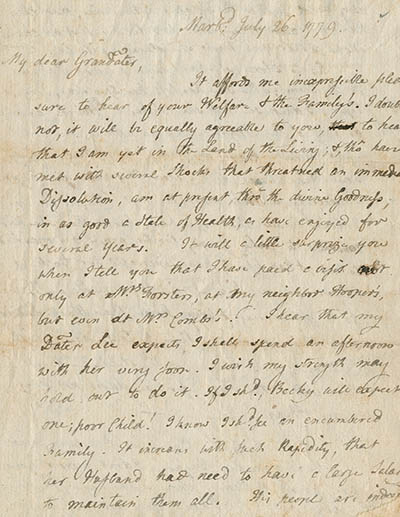 Marbd. July 26. 1779.
My dear Grandater,
It affords me inexpressible plea
sure to hear of your Welfare & the Family's. I doubt
not, it will be equally agreeable to you, to hear
that I am yet in the Land of the Living; & tho' have
met with several Shocks that threatned an immedi
Dissolution, am at present, thro' the divine Goodness,
in as good a State of Health, as have enjoyed for
several Years. It will a little surprize you
when I tell you that I have paid a visit not
only at Mrs at my neighbor Hooper's,
but even at Mrs Combs's! I hear that my
Dater Lee expects I shall spend an afternoon
with her very soon. I wish my strength may
hold out to do it. If I shd, Becky will expect
one; poor Child! I know I shd an encumbered
Family. It increases with such Rapidity, that
her Husband had need to have a large Salar
to maintain them all. His people are indeed